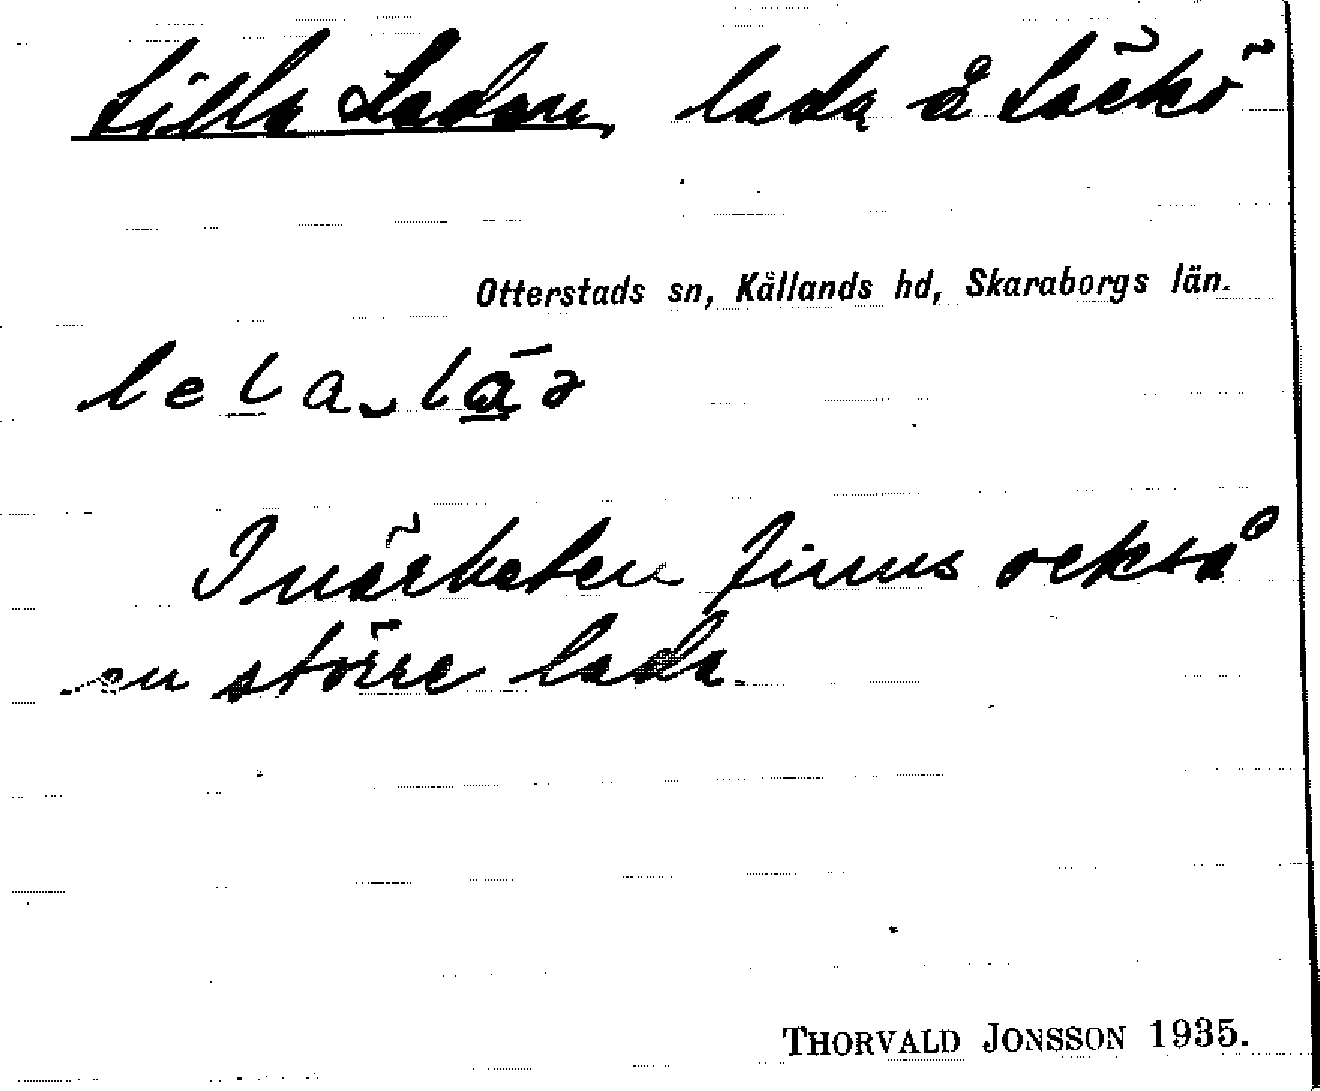 Lilla Ladan, lada å Läckö
Otterstads sn, Kållands hd, Skaraborgs län.
I närheten finns också
en större lada.
THORVALD JONSSON 1935.